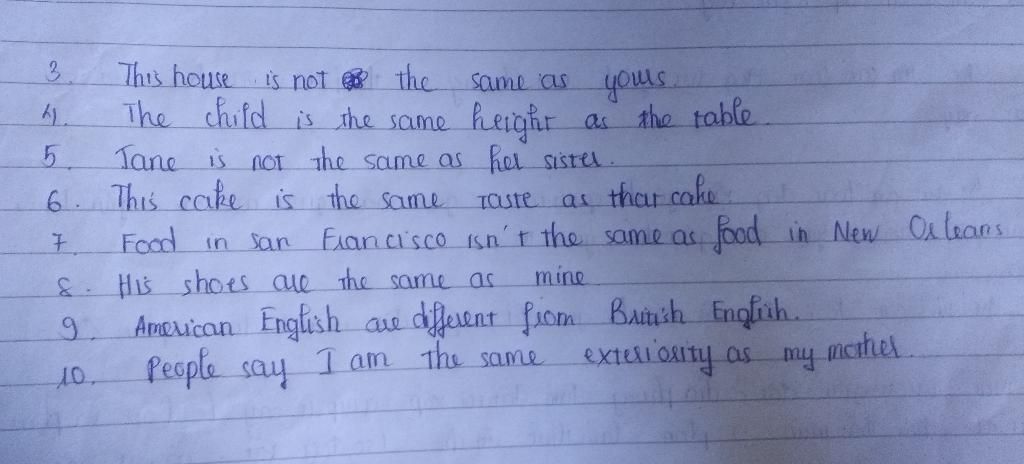 3. This house is not the same as yours.
4. The child is the same height as the table.
5. Jane is not the same as her sister.
6. This cake is the same taste as that cake
7. Food in San Francisco isn't the same as food in New Orleans
8. His shoes are the same as mine
9. American English are different from British English.
10. People say I am the same exteriority as my mother.